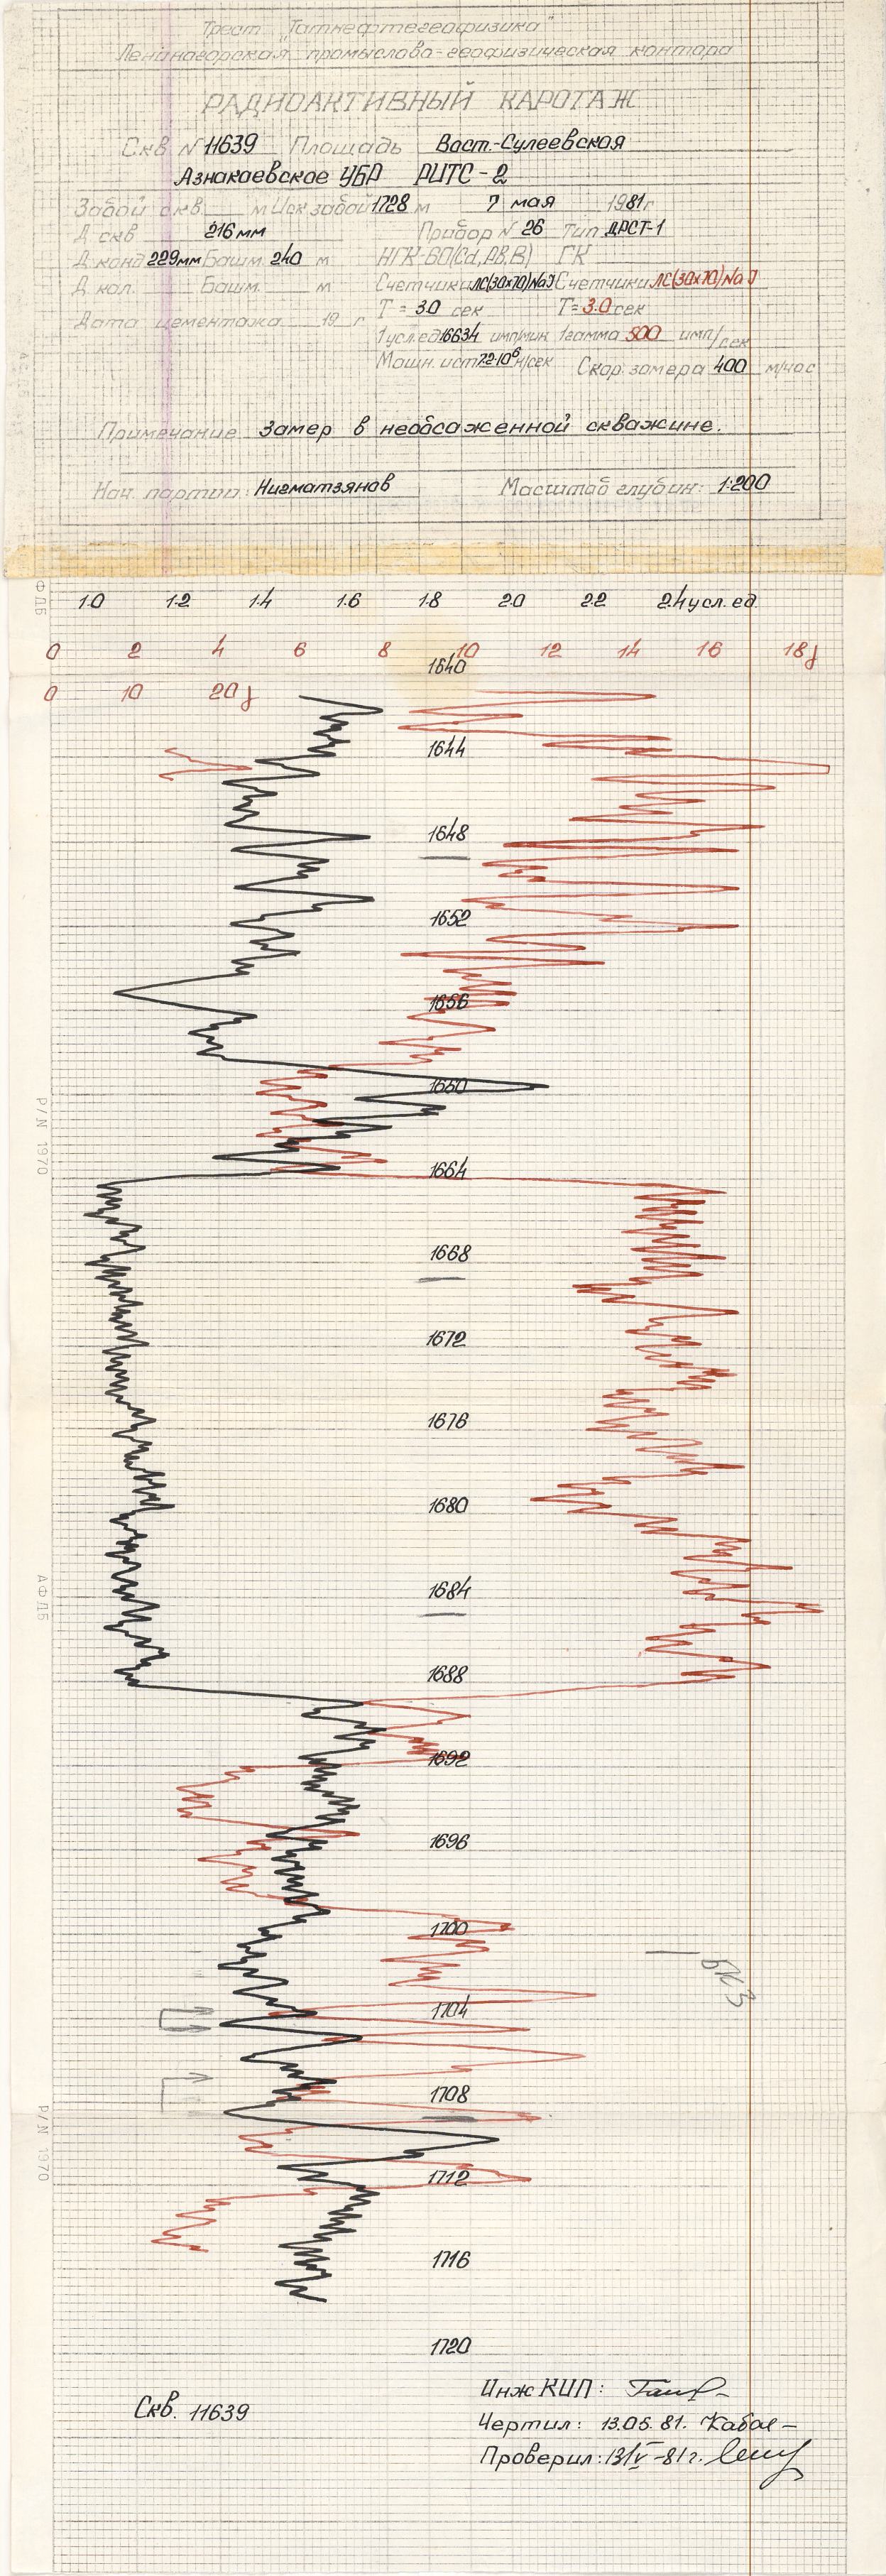 Трест „Татнефтегеофизика"
Лениногорская промыслово-геофизическая контора
РАДИОАКТИВНЫЙ КАРОТАЖ
Скв N 11639 Площадь Вост.-Сулеевская
Азнакаевское УБР РИТС-2
Забой скв. м Иск забой 1728 м 7 мая 1981 г
Д скв 216 мм Прибор N 26 Тип ДРСТ-1
Д конд 229мм Башм. 240 м НГК-60(Cd, РВ, В) ГК
Д кол. Башм. м Счетчики ЛС(30х70)NaJ Счетчики ЛС(30х70)NaJ
Т= 3.0 сек Т= 3.0 сек
Дата цементажа 19 г
1 усл.ед 16634 имп/мин 1гамма 500 имп/сек
Мощн. ист 7.2·10⁶ н/сек Скор. замера 400 м/час
Примечание Замер в необсаженной скважине.
Нач. партии: Нигматзянов Масштаб глубин: 1:200
1.0 1.2 1.4 1.6 1.8 2.0 2.2 2.4 усл. ед.
0 2 4 6 8 10 12 14 16 18 γ
1640
0 10 20 γ
1644
1648
1652
1656
1660
P/N 1970
1664
1668
1672
1676
1680
1684
1688
1692
1696
1700
БКЗ
1704
1708
P/N 1970
1712
1716
1720
Скв. 11639
Инж КИП:
Чертил: 13.05.81.
Проверил: 13/V-81г.